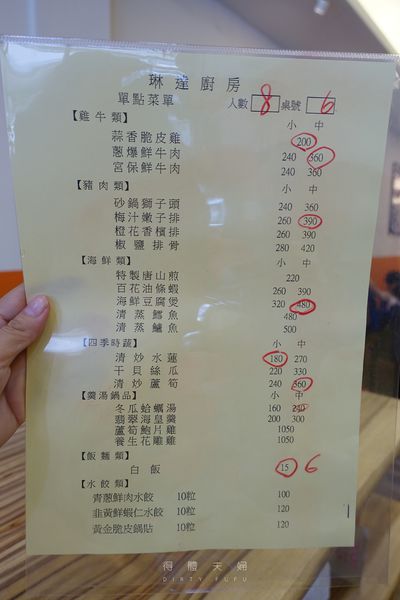 琳達廚房
單點菜單 人數 8 桌號 6
【雞牛類】 小 中
蒜香脆皮雞 200
蔥爆鮮牛肉 240 360
宮保鮮牛肉 240 360
【豬肉類】 小 中
砂鍋獅子頭 240 360
梅汁嫩子排 260 390
橙花香檳排 260 390
椒鹽排骨 280 420
【海鮮類】 小 中
特製唐山煎 220
百花油條蝦 260 390
海鮮豆腐煲 320 480
清蒸鱈魚 480
清蒸鱸魚 500
【四季時蔬】 小 中
清炒水蓮 180 270
干貝絲瓜 220 330
清炒蘆筍 240 360
【羹湯鍋品】 小 中
冬瓜蛤蠣湯 160 240
翡翠海皇羹 200 300
蘆筍鮑片雞 1050
養生花雕雞 1050
【飯麵類】
白飯 15 6
【水餃類】
青蔥鮮肉水餃 10粒 100
韭黃鮮蝦仁水餃 10粒 120
黃金脆皮鍋貼 10粒 120
得體夫婦
DIRTY FUFU